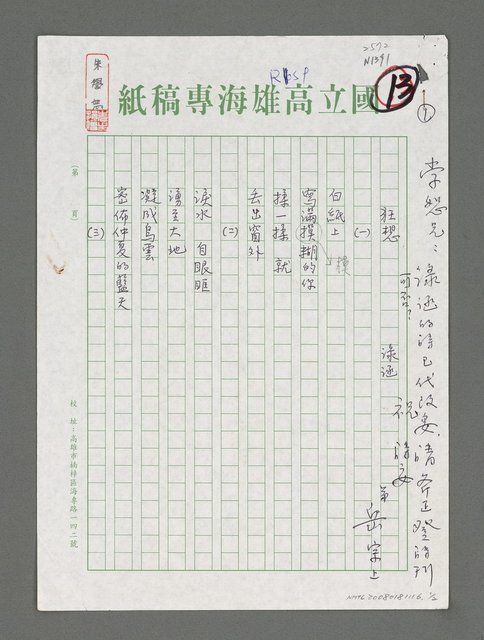 2572
N1391
R65P
13
①
國立高雄海專稿紙
朱學恕
學恕兄：涂逊的詩已代改妥，請斧正登詩刊
可否？
祝
詩安
弟
岳宗上
狂想
涂逊
(一)
白紙上
寫滿摸糊的你
模
揉一揉 就
丟出窗外
(二)
淚水 自眼眶
湧至大地
凝成烏雲
密佈仲夏的藍天
(三)
(第 頁)
校址：高雄市楠梓區海專路一四二號
NMTL20080181116, 1/2